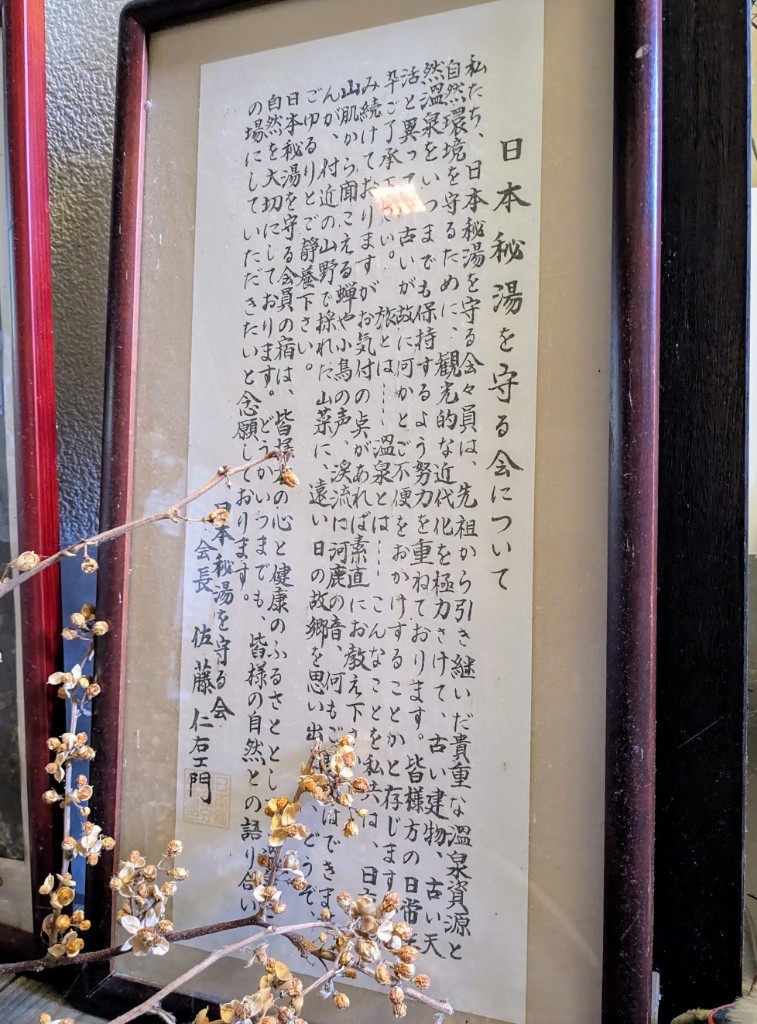 日本秘湯を守る会について
私たち、日本秘湯を守る会々員は、先祖から引き継いだ貴重な温泉資源と
自然環境を守るために、観光的な近代化を極力さけて、古い建物、古い天
然温泉をいつまでも保持するよう努力を重ねております。皆様方の日常
活と異って、古いが故に何かとご不便をおかけすることかと存じます
卒ご了承下さい。 旅とは……温泉とは……こんなことを私共は、日
み続けておりますがお気付の点があれば素直にお教え下
山肌から聞こえる蝉や小鳥の声、渓流に河鹿の音、何もご はできま
んが、付近の山野で採れた山菜に、遠い日の故郷を思い出 、どうぞ、
ごゆるりとご静養下さい。
日本秘湯を守る会員の宿は、皆様 の心と健康のふるさととし
自然を大切にしております。どうかいつまでも、皆様の自然との語り合い
の場にしていただきたいと念願しております。
日本秘湯を守る会
会長 佐藤仁右エ門